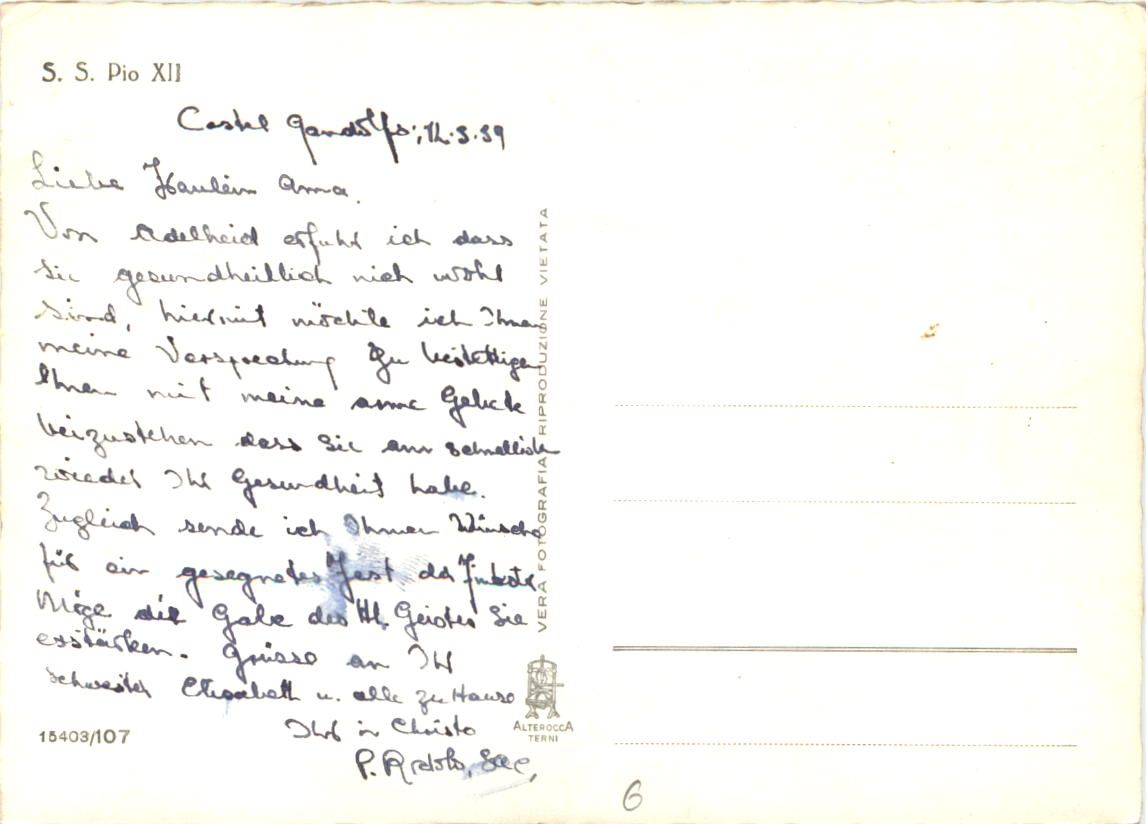 S. S. Pio XII
Castel Gandolfo, 12.5.59
Liebe Fräulein Anna.
Von Adelheid erfuhr ich dass
Sie gesundheitlich nich wohl
Sind, hiermit möchte ich Ihnen
meine Versprechung zu bestettigen
Ihnen mit meine arme Gebete
beizustehen dass Sie am schnellsten
wieder Ihr Gesundheit habe.
Zugleich sende ich Ihnen Wünsche
für ein gesegnetes Fest der
Möge die Gabe des Hl. Geistes Sie
erstärken. Grüsse an Ihr
Schwester Elisabeth u. alle zu Hause
Ihr in Christo
P.
VERA FOTOGRAFIA - RIPRODUZIONE VIETATA
ALTEROCCA
TERNI
15403/107
6